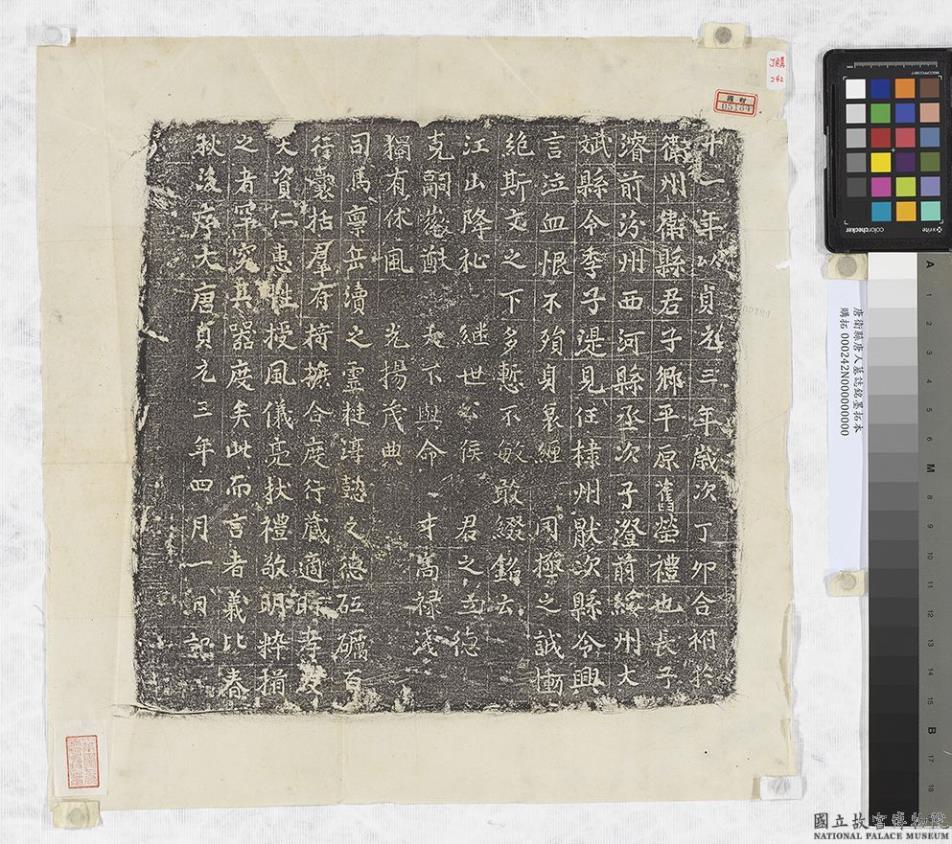 卅一年以貞元三年歲次丁卯合祔於
衛州衛縣君子鄉平原舊塋禮也長子
濬前汾州西河縣丞次子澄前綏州大
斌縣令季子湜見任棣州猒次縣令興
言泣血恨不殞身哀纏罔極之誠慟
絕斯文之下多慙不敏敢綴銘云
江山降祉 繼世公侯 君之立德
克嗣 猷 夫不與命 才高祿淺
獨有休風 光揚茂典
司馬禀岳瀆之靈挺淳懿之德砥礪百
行囊括羣有 摭合度行藏適時孝友
天資仁惠性授風儀亮拔禮敬明粹揣
之者罕究其器度矣此而言者義比春
秋後序大唐貞元三年四月一日記
唐衛縣唐人墓誌銘墨拓本
購拓 000242N000000000
國立故宮博物院
NATIONAL PALACE MUSEUM